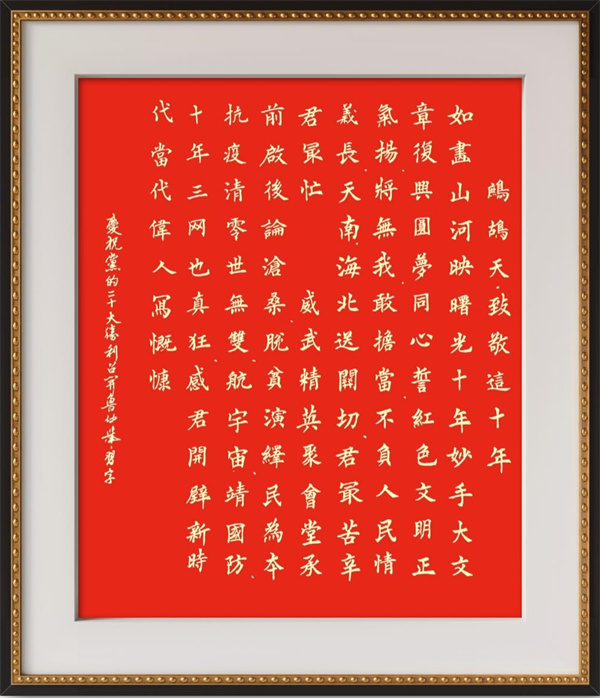 鷓鴣天·致敬這十年
如畫山河映曙光十年妙手大文
章復興圓夢同心誓紅色文明正
氣揚、將無我、敢擔當、不負人民情
義長、天南、海北送關切、君冣苦辛、
君冣忙 威武精英聚會堂承
前啟後論滄桑、脫貧演繹民為本
抗疫清零世無雙、航宇宙、靖國防、
十年三网也真狂、感君開辟新時
代當代偉人寫慨慷
慶祝黨的二十大勝利召開魯仙 習字